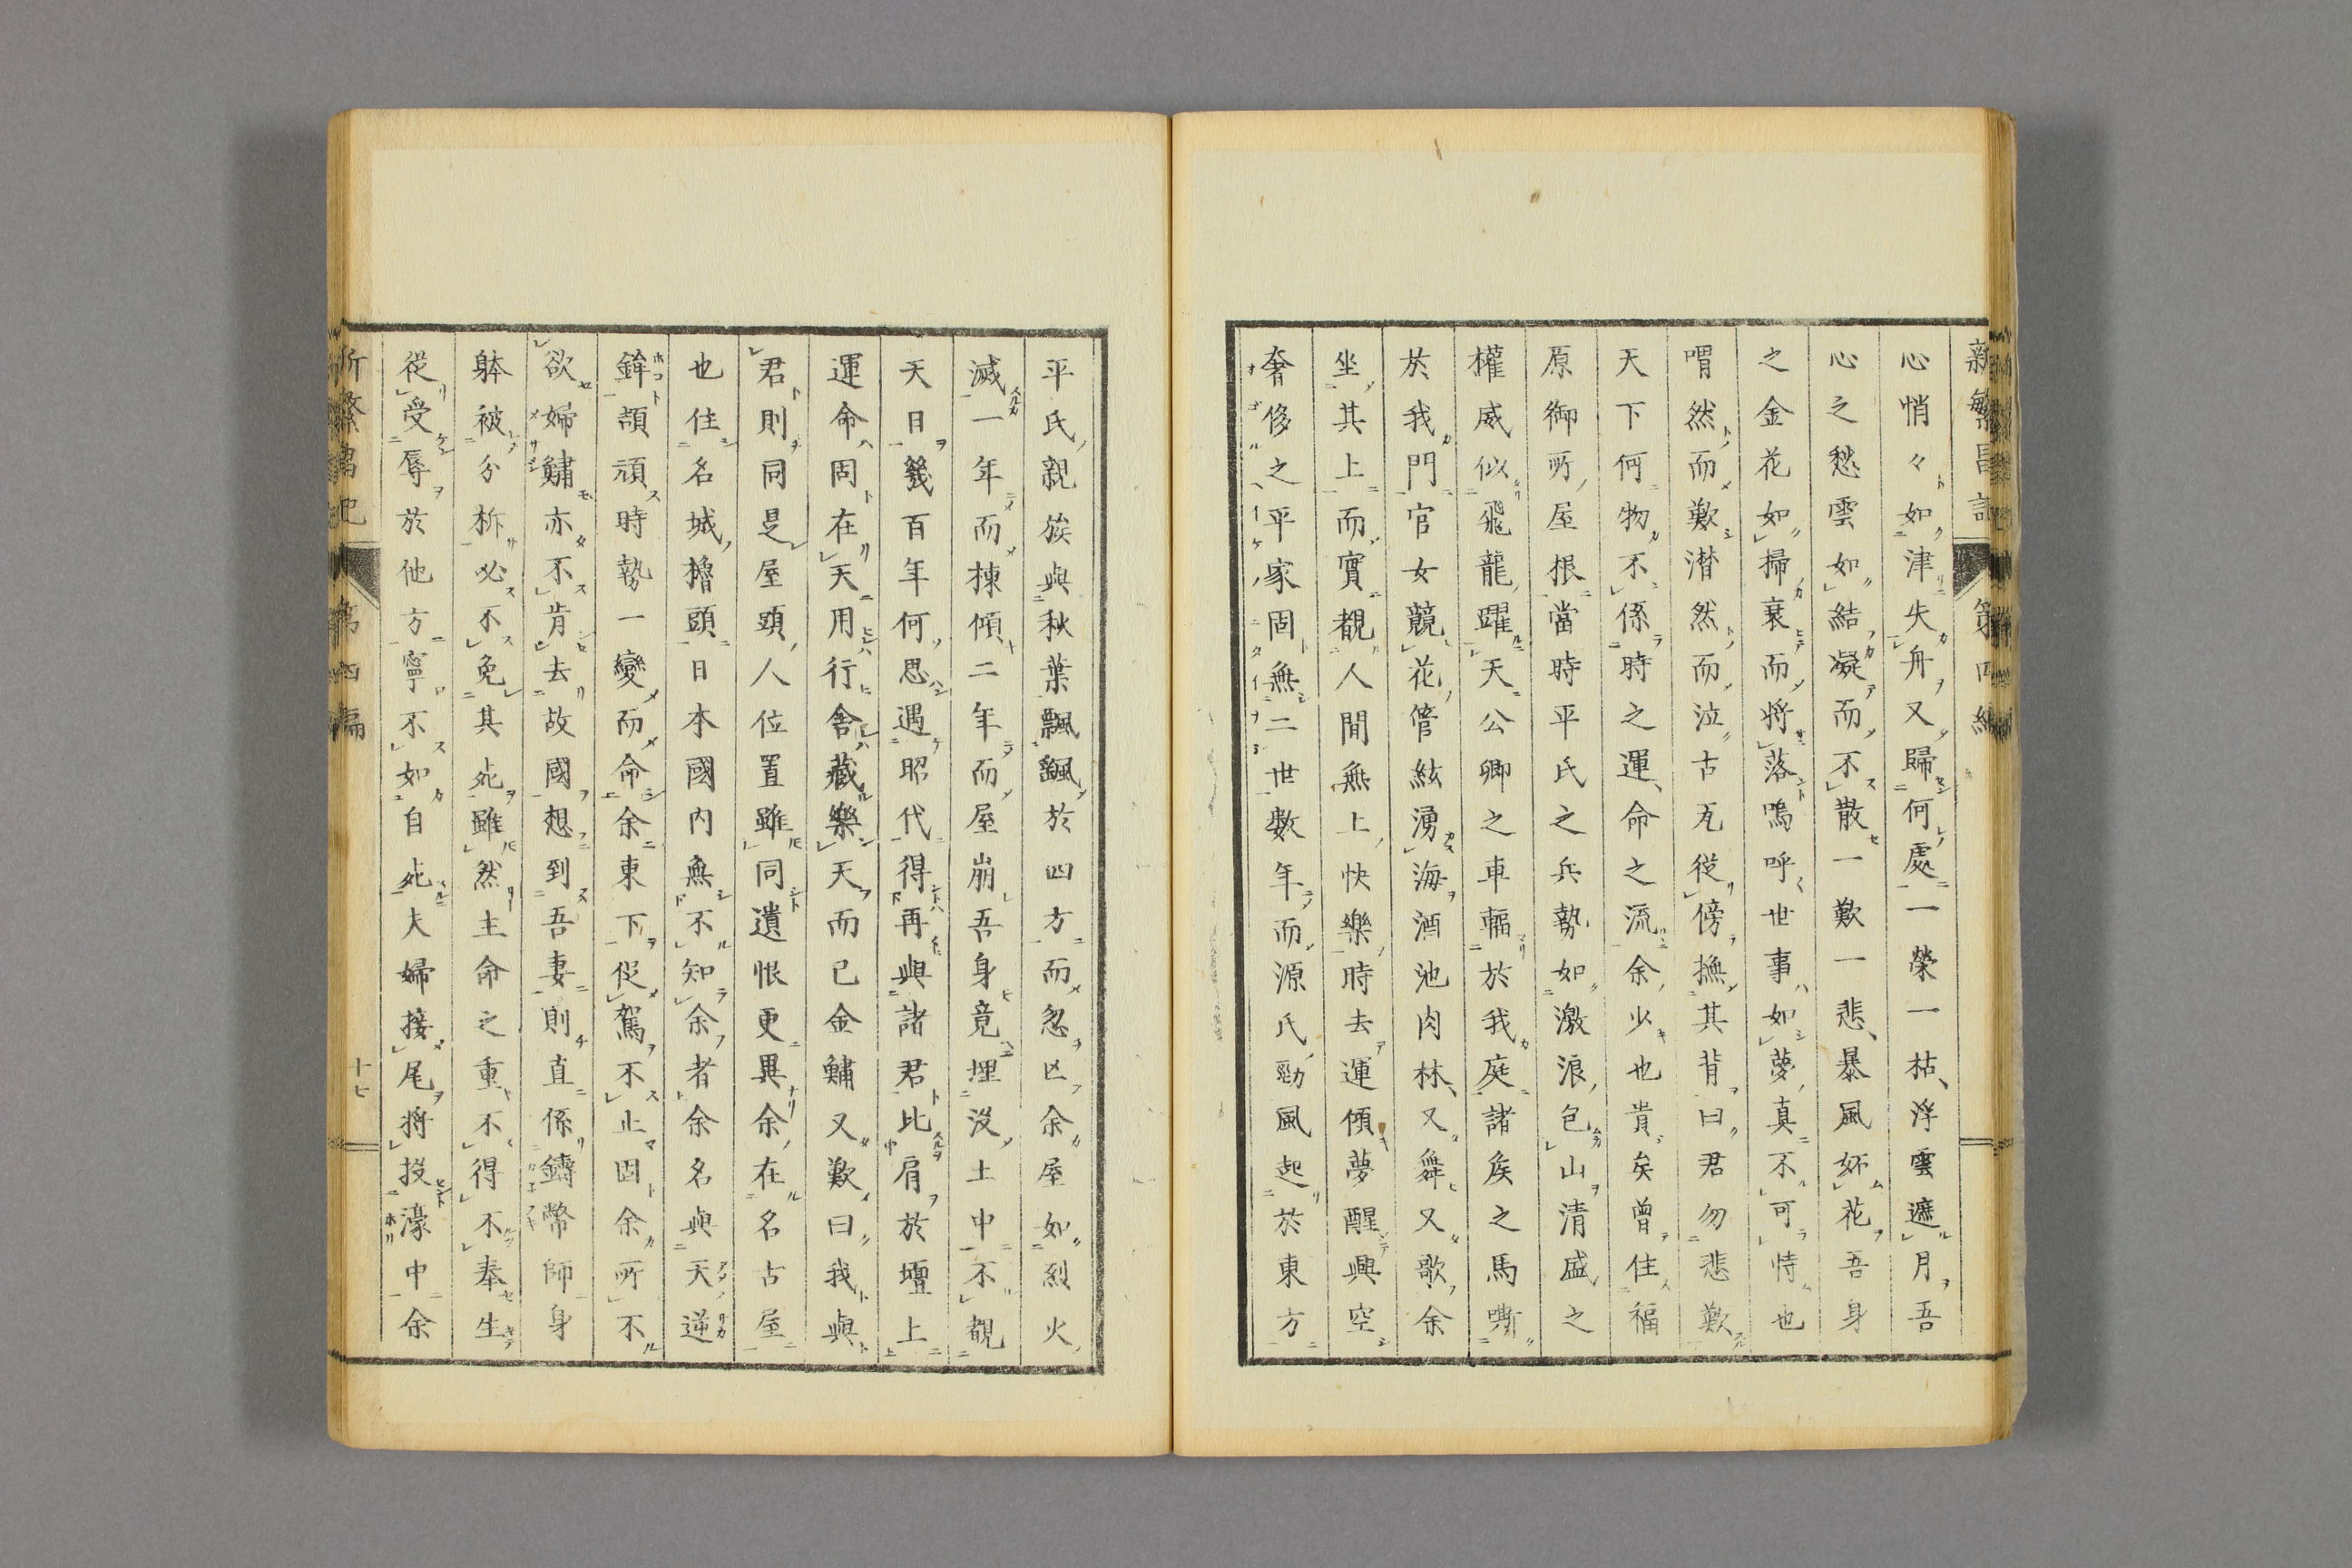 新繁昌記 第四編
心悄々如津失舟又歸何處一榮一枯浮雲遮月吾
心之愁雲如結凝而不散一歎一悲暴風妬花吾身
之金花如掃衰而將落嗚呼世事如夢真不可恃也
喟然而歎潸然而泣古瓦從傍撫其背曰君勿悲歎
天下何物不係時之運命之流余少也貴矣曾住福
原御所屋根當時平氏之兵勢如激浪包山清盛之
權威似飛龍躍天公卿之車輻於我庭諸矦之馬嘶
於我門官女競花管絃湧海酒池肉林又舞又歌余
坐其上而實覩人間無上快樂時去運傾夢醒興空
奢侈之平家固無二世數年而源氏勁風起於東方
平氏親族與秋葉飄飄於四方而忽亡余屋如烈火
滅一年而棟傾二年而屋崩吾身竟埋沒土中不覩
天日幾百年何思遇昭代得再與諸君比肩於壇上
運命固在天用行舍藏樂天而已金鱐又歎曰我與
君則同是屋頭人位置雖同遺恨更異余在名古屋
也住名城櫓頭日本國內無不知余者余名與天逆
鉾頡頏時勢一變而命余東下促駕不止固余所不
欲婦鱐亦不肯去故國想到吾妻則直係鑄幣師身
躰被分析必不免其死雖然主命之重不得不奉生
從受辱於他方寧不如自死夫婦接尾將投濠中余
十七